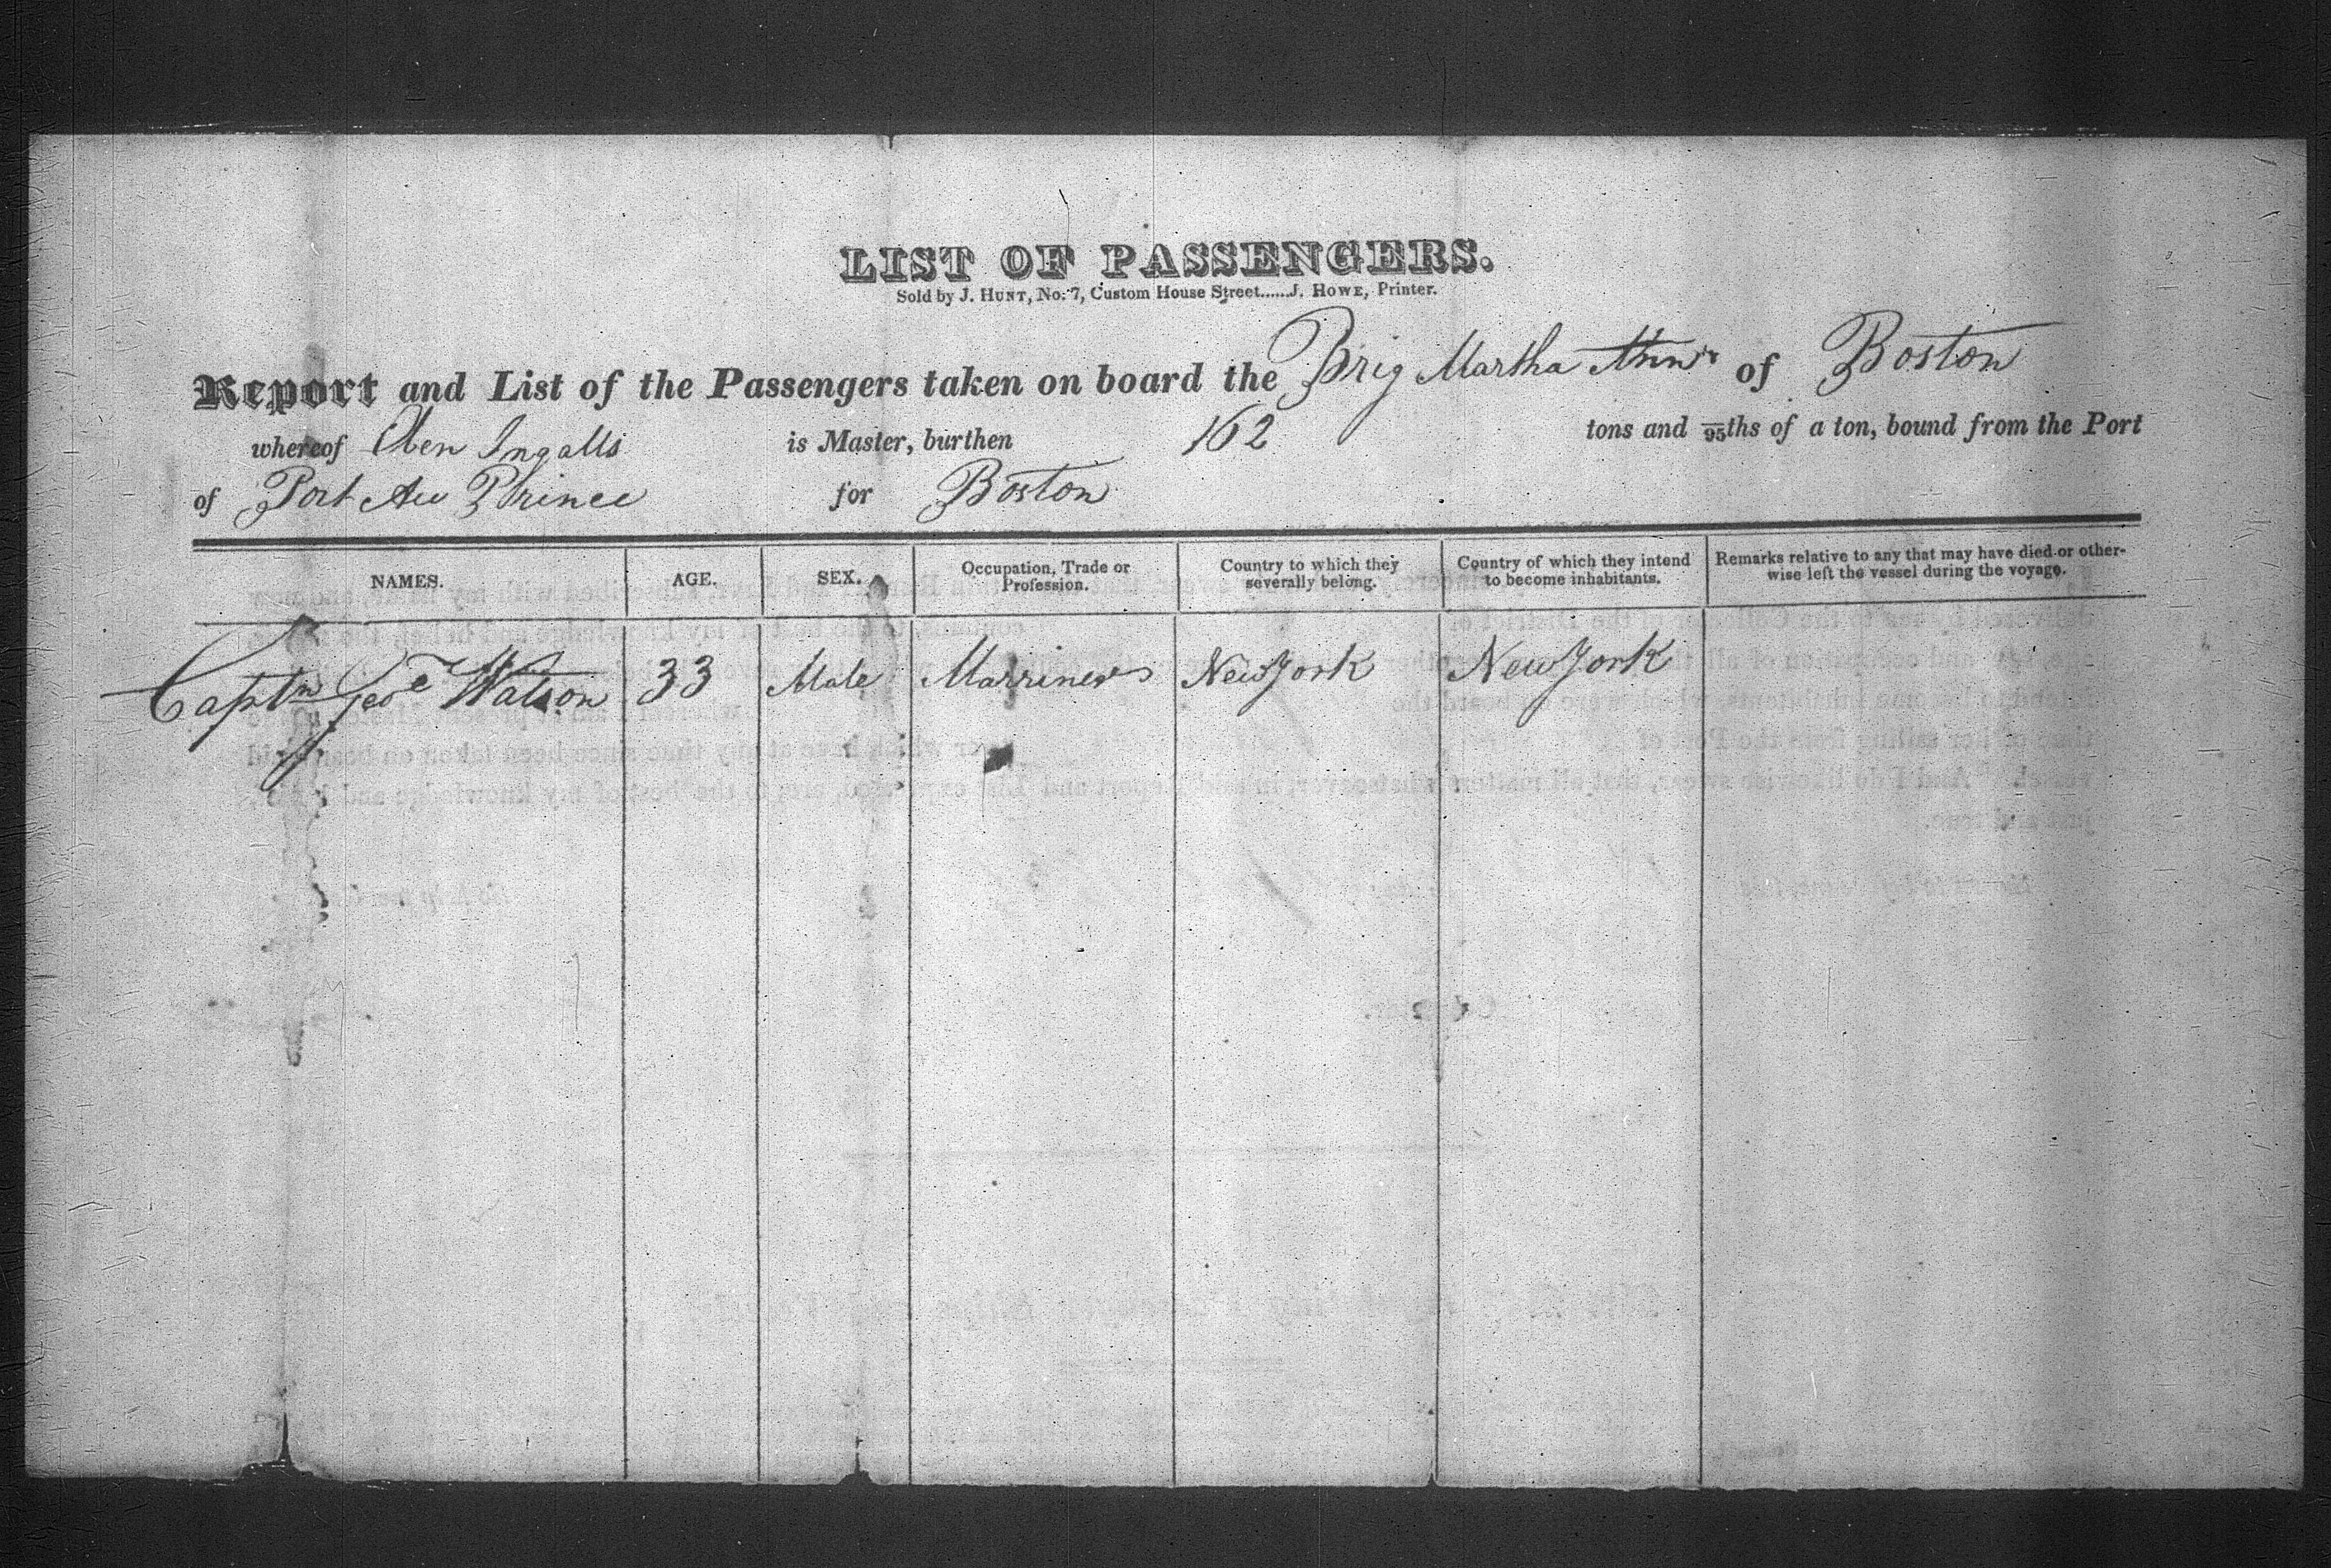 LIST OF PASSENGERS.
Sold by J. HUNT, No. 7, Custom House Street......J. HOWE, Printer.
Report and List of the Passengers taken on board the Brig Martha Ann of Boston
whereof Eben Ingalls is Master, burthen 162 tons and 95ths of a ton, bound from the Port
of Port Au Prince for Boston
NAMES. AGE. SEX. Occupation, Trade or Profession. Country to which they severally belong. Country of which they intend to become inhabitants. Remarks relative to any that may have died or otherwise left the vessel during the voyage.
Captn Geoe Watson 33 Male Marriner New York New York